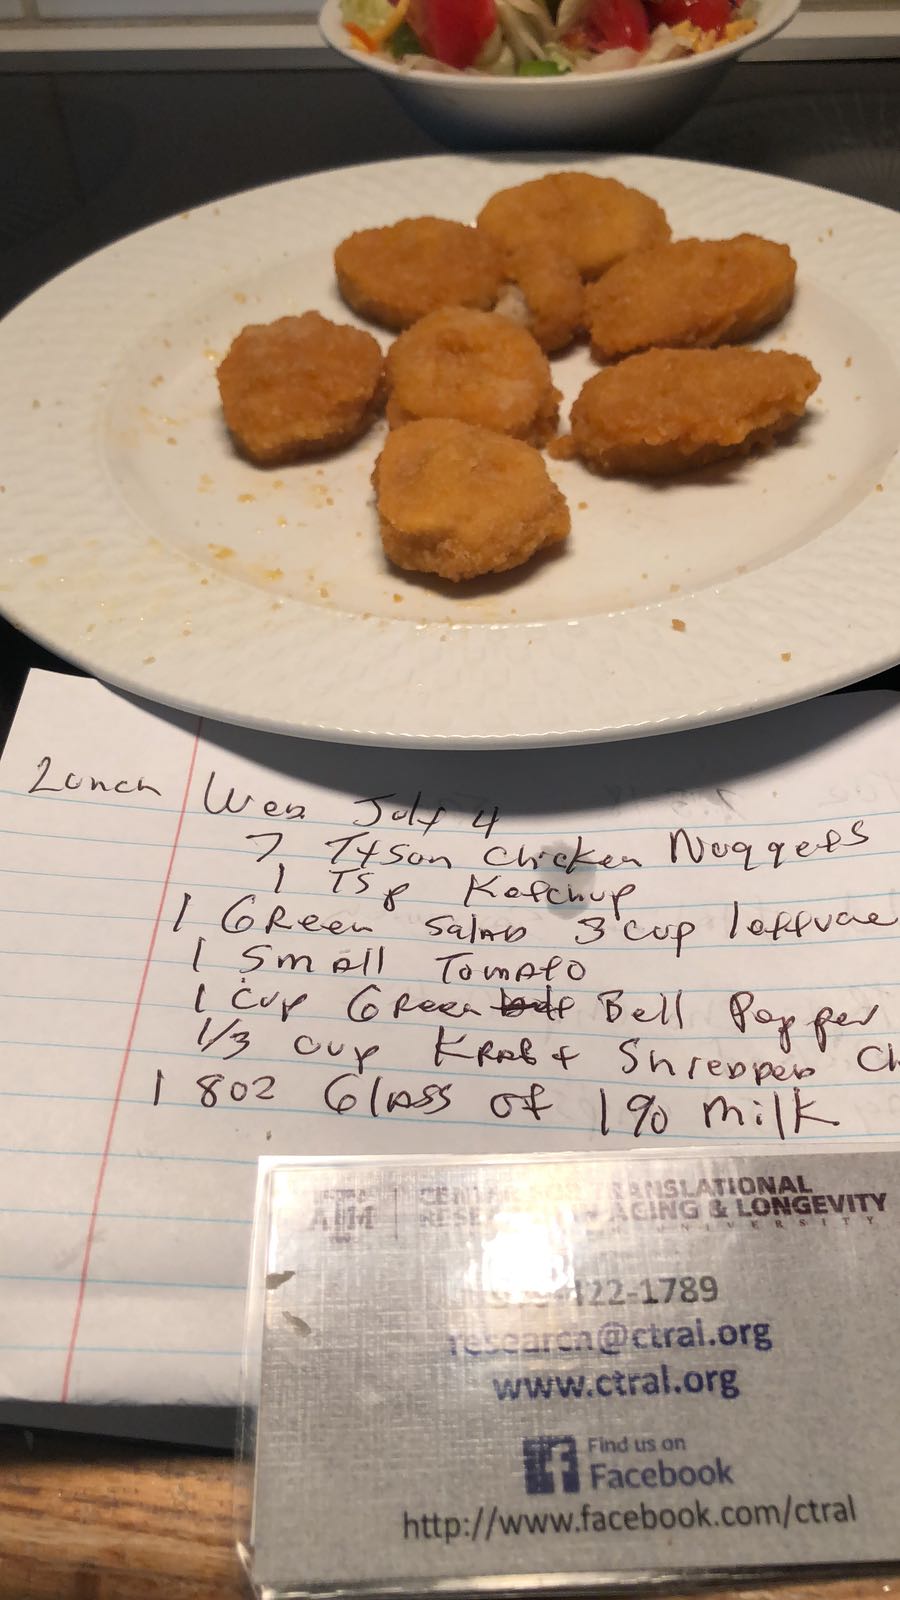 Lunch Wed July 4
7 Tyson Chicken Nuggets
1 TSp Ketchup
1 GReen Salad 3 cup lettuce
1 Small Tomato
1 Cup GReen Bell Pepper
1/3 cup KRaft Shredded Ch
1 8oz Glass of 1% milk
ATM
CENTER FOR TRANSLATIONAL
RESEARCH IN AGING & LONGEVITY
UNIVERSITY
422-1789
research@ctral.org
www.ctral.org
Find us on
Facebook
http://www.facebook.com/ctral